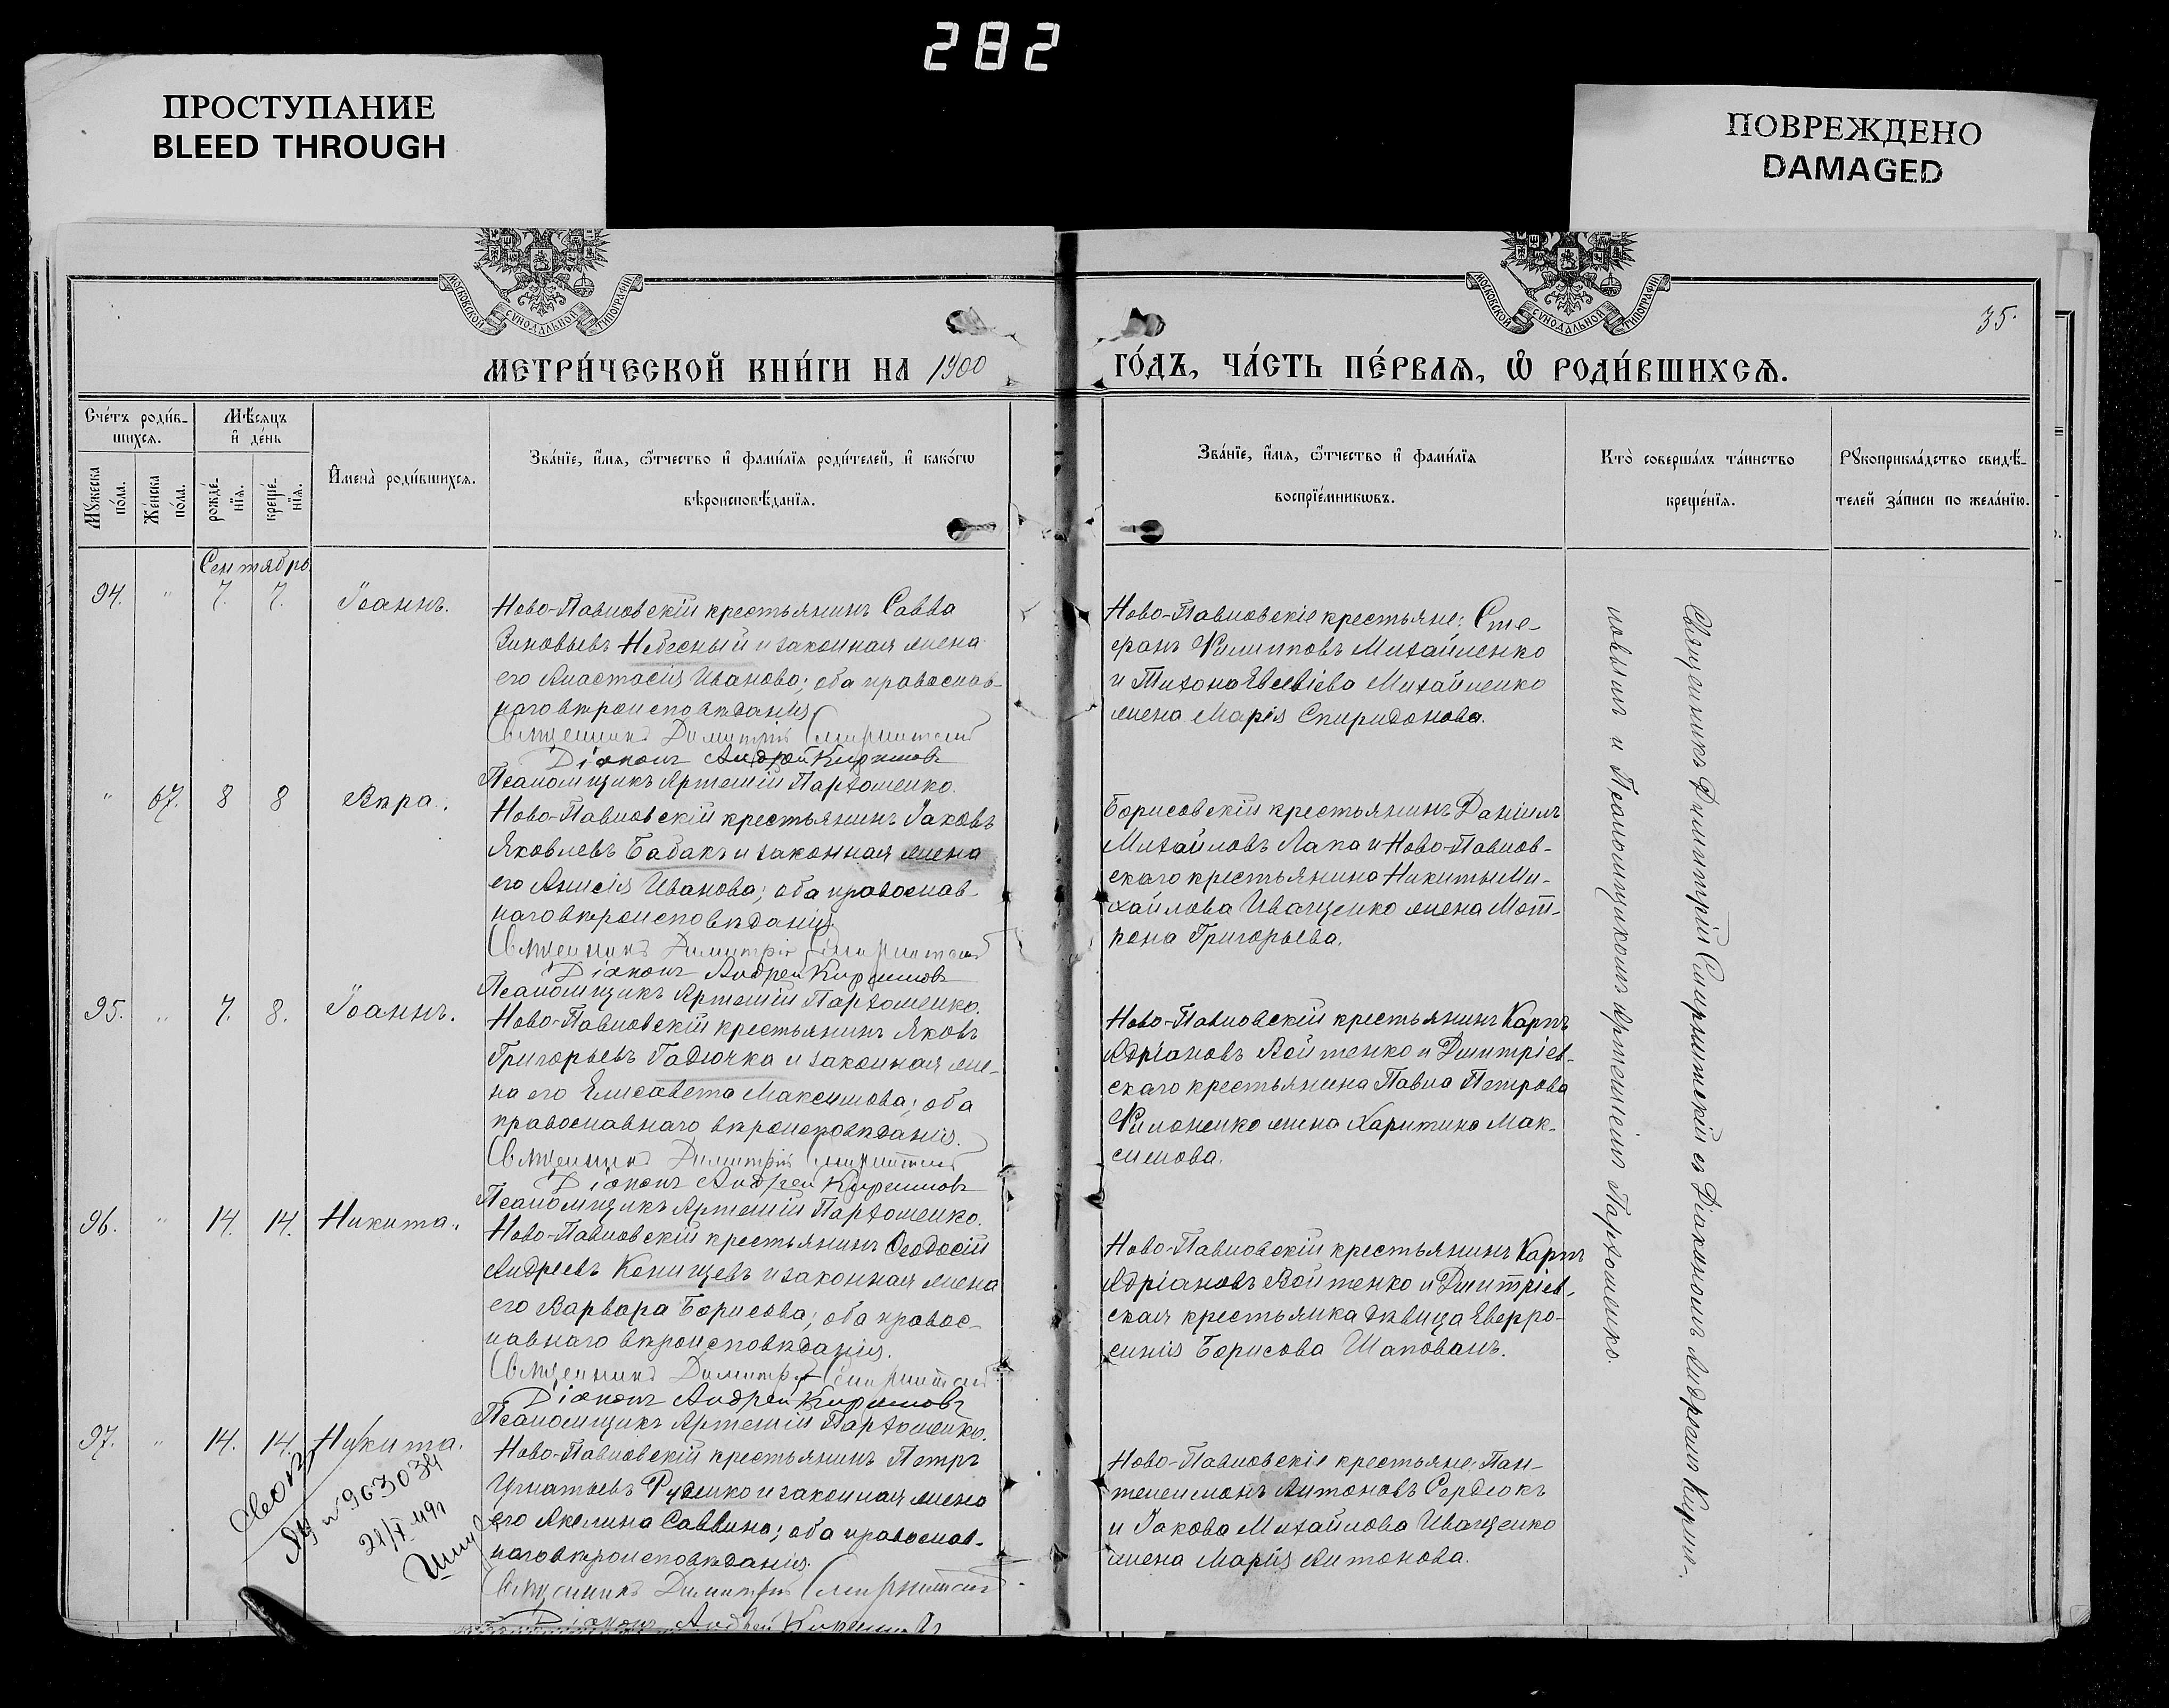 282
ПРОСТУПАНИЕ
BLEED THROUGH
ПОВРЕЖДЕНО
DAMAGED
МОСКОВСКОЙ СУНОДАЛЬНОЙ ТИПОГРАФІИ
МОСКОВСКОЙ СУНОДАЛЬНОЙ ТИПОГРАФІИ
35.
МЕТРИ́ЧЕСКОЙ КНИ́ГИ НА 1900
ГО́ДЪ, ЧА́СТЬ ПЕ́РВАЯ, Ѡ РОДИ́ВШИХСЯ.
Сче́тъ роди́в-
шихся.
Мѣ́сяцъ
и де́нь
Мꙋжеска по́ла.
Же́нска по́ла.
рожде́-
нїя.
креще́-
нїя.
Имена̀ роди́вшихся.
Зва́нїе, и́мя, ѻ҆́тчество и фами́лїя роди́телей, и како́гѡ
вѣроисповѣ́данїя.
Зва́нїе, и́мя, ѻ҆́тчество и фами́лїя
воспрїе́мникѡвъ.
Кто̀ соверша́лъ та́инство
креще́нїя.
Рꙋкоприкла́дство свидѣ́-
телей за́писи по жела́нїю.
Сентябрь
94. " 7. 7. Іоаннъ.
Ново-Павловскій крестьянинъ Савва
Зиновьевъ Небесный и законная жена
его Анастасія Иванова; оба православ-
наго вѣроисповѣданія.
Священникъ Димитрій Смирнитскій
Діаконъ Андрей Кириловъ
Псаломщикъ Артемій Пархоменко.
Ново-Павловскіе крестьяне: Сте-
фанъ Филиповъ Михайленко
и Тихона Евсевіева Михайленко
жена Марія Спиридонова.
" 67. 8 8 Вѣра.
Ново-Павловскій крестьянинъ Іаковъ
Яковлевъ Бабакъ и законная жена
его Анисія Иванова; оба православ-
наго вѣроисповѣданія.
Священникъ Димитрій Смирнитскій
Діаконъ Андрей Кириловъ
Псаломщикъ Артемій Пархоменко.
Борисовскій крестьянинъ Даніилъ
Михайловъ Лапа и Ново-Павлов-
скаго крестьянина Никиты Ми-
хайлова Иващенко жена Мот-
рона Григорьева.
95. " 7. 8. Іоаннъ.
Ново-Павловскій крестьянинъ Яковъ
Григорьевъ Гадючка и законная же-
на его Елисавета Максимова; оба
православнаго вѣроисповѣданія.
Священникъ Димитрій Смирнитскій
Діаконъ Андрей Кириловъ
Псаломщикъ Артемій Пархоменко.
Ново-Павловскій крестьянинъ Карпъ
Адріановъ Войтенко и Дмитріев-
скаго крестьянина Павла Петрова
Филоненко жена Харитина Мак-
симова.
96. " 14. 14. Никита.
Ново-Павловскій крестьянинъ Ѳеодосій
Андреевъ Конищевъ и законная жена
его Варвара Борисова; оба правос-
лавнаго вѣроисповѣданія.
Священникъ Димитрій Смирнитскій
Діаконъ Андрей Кириловъ
Псаломщикъ Артемій Пархоменко.
Ново-Павловскій крестьянинъ Карпъ
Адріановъ Войтенко и Дмитріев-
ская крестьянка дѣвица Евфро-
синія Борисова Шаповалъ.
97. " 14. 14. Никита.
Ново-Павловскій крестьянинъ Петръ
Игнатьевъ Руденко и законная жена
его Акелина Саввина; оба православ-
наго вѣроисповѣданія.
Священникъ Димитрій Смирнитскій
Діаконъ Андрей Кириловъ
Ново-Павловскіе крестьяне: Пан-
телеимонъ Антоновъ Сердюкъ
и Іакова Михайлова Иващенко
жена Марія Антонова.
Священникъ Димитрій Смирнитскій съ Діакономъ Андреемъ Кирил-
ловымъ и Псаломщикомъ Артеміемъ Пархоменко.